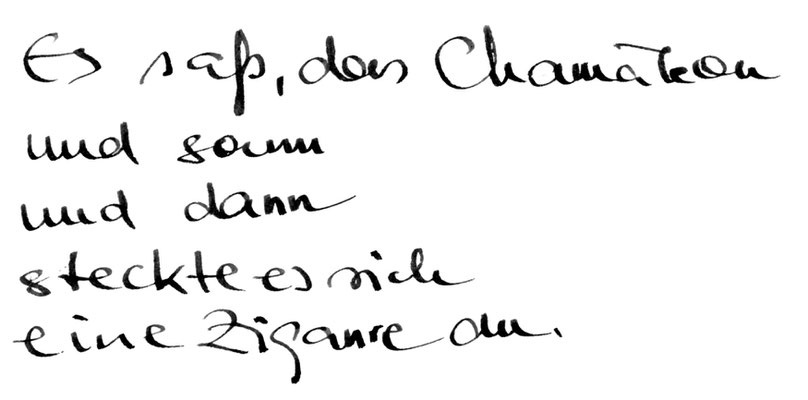 Es saß, das Chamäleon
und sann
und dann
steckte es sich
eine Zigarre an.